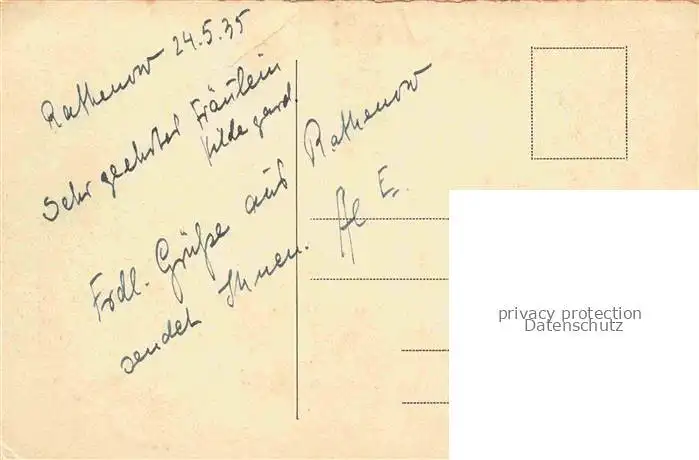 Rathenow 24.5.35
Sehr geehrtes Fräulein
Hildegard.
Frdl. Grüße aus Rathenow
sendet Ihnen.
privacy protection
Datenschutz